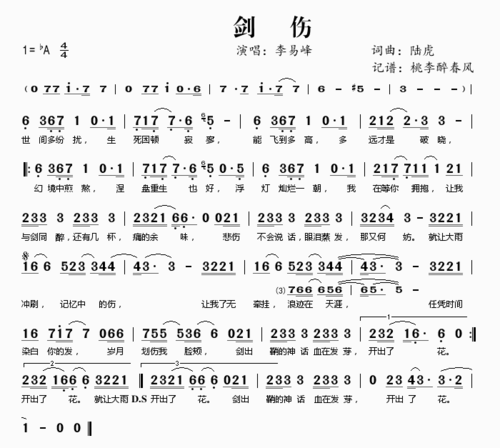 剑 伤
1=♭A 4/4 演唱：李易峰 词曲：陆虎
记谱：桃李醉春风
(0 77 i·7 7 | 0 77 i 0·6 | 7 7 i·7 7 | 6 - #5 | 3 - - - )
6 367 1 0·1 | 717 7·6 5 3 | 6 367 1 0·1 | 212 2·3 3 - |
世 间多纷 扰，生 死困顿 寂寥，能 飞到多高，多 远才是 破晓，
6 367 1 0·1 | 717 7·6 5 3 | 6 367 1 0·1 | 217 711 1 21
幻 境中煎 熬，涅 盘重生 也好，浮 灯灿烂一 朝，我 在等你 拥抱，让我
233 3 233 3 | 2321 66· 0 021 | 233 3 233 3 | 3234 3 - 3221 |
与剑同 醉，还有几 杯，痛的余 味，悲伤 不会说 话，眼泪蒸 发，那又何 妨。就让大雨
166 523 344 | 43· 3 - 3221 | 166 523 344 | 43· 3 - 3221 |
(3) 766 656 | 65· 5 - 3
冲刷，记忆中 的伤，让我了无 牵挂，浪迹在 天涯，任凭时间
16 717 7 066 | 755 536 6 021 | 233 3 233 3 | 232 16· 6 0 :|
染白 你的发，岁月 划伤我 脸颊，剑出 鞘的神话 血在发 芽，开出了 花。
232 166 6 3221 | 2321 66· 6 021 | 233 3 233 3 | 0 23 43· 3·2 |
开出了 花。就让大雨 D.S 开出了 花。剑出 鞘的神话 血在发 芽，开出 了 花。
1 - 0 0 ‖